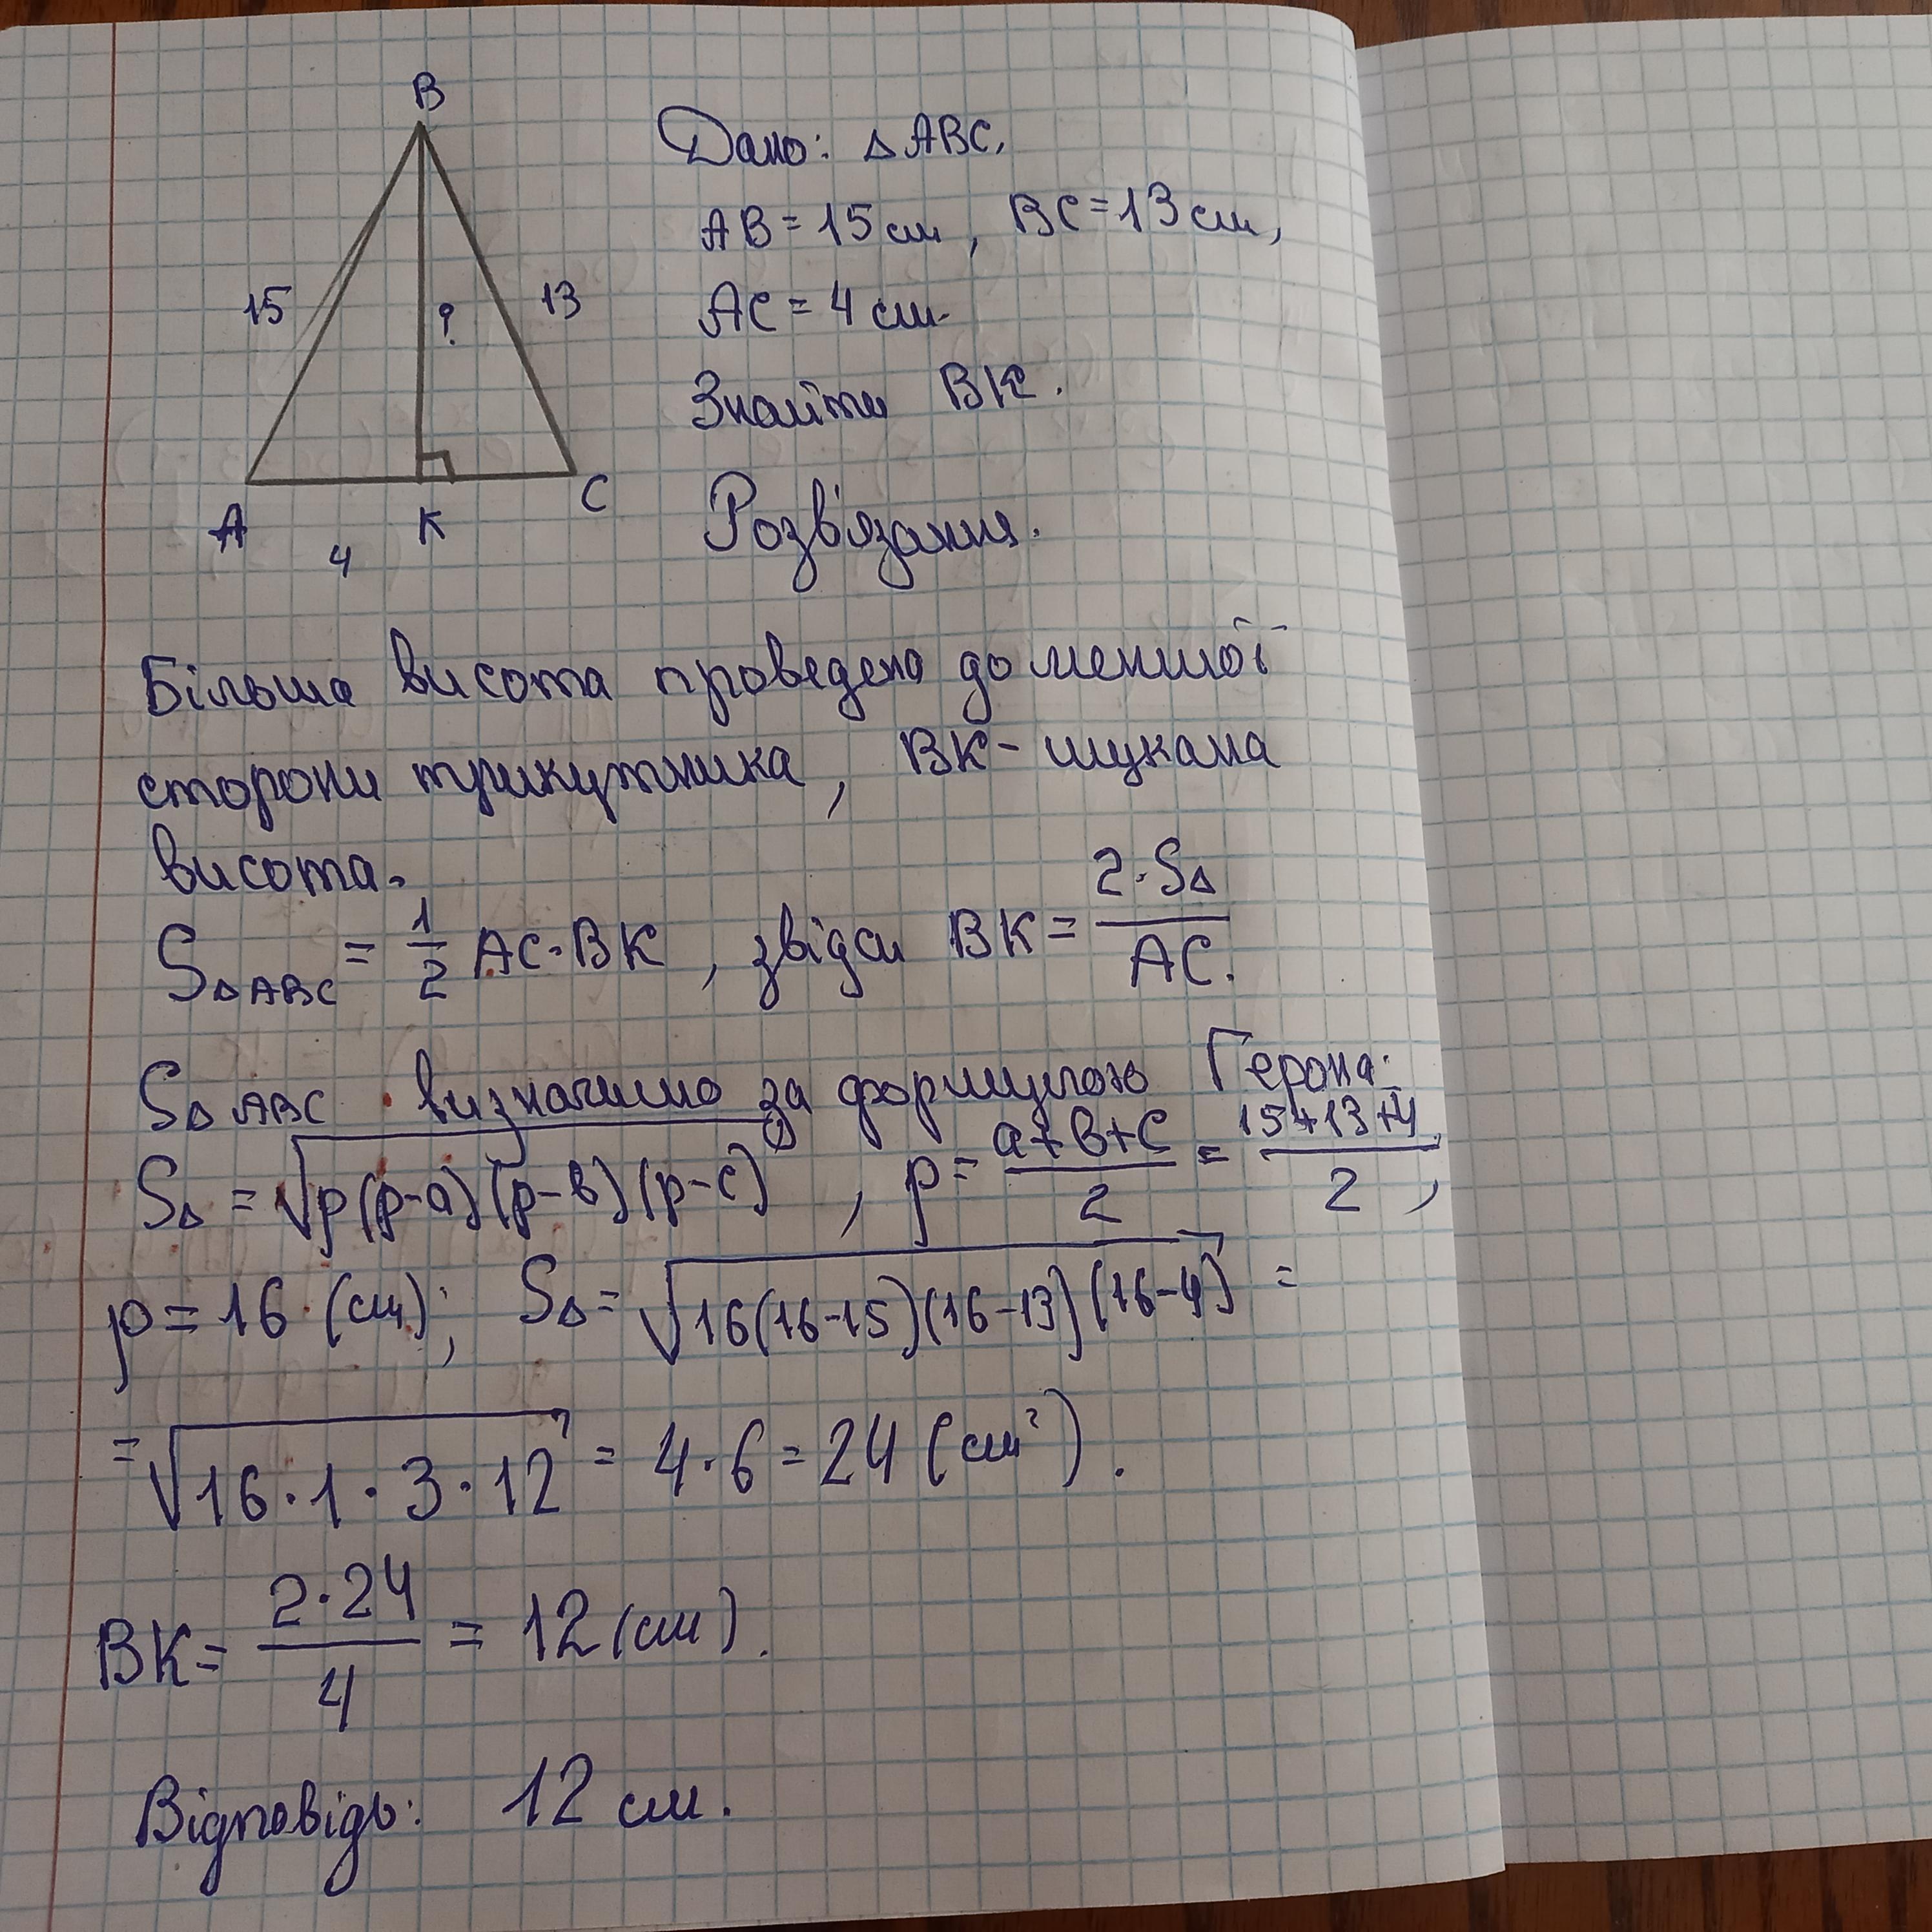 B
15
?
13
A
K
C
4
Дано: △ABC,
AB = 15 см, BC = 13 см,
AC = 4 см.
Знайти BK.
Розв'язання.
Більша висота проведена до меншої
сторони трикутника, BK - шукана
висота.
S△ABC = 1/2 AC · BK, звідси BK = 2·S△/AC.
S△ABC визначимо за формулою Герона:
S△ = √p(p-a)(p-b)(p-c), p = a+b+c/2 = 15+13+4/2,
p = 16 (см); S△ = √16(16-15)(16-13)(16-4) =
= √16·1·3·12 = 4·6 = 24 (см²).
BK = 2·24/4 = 12 (см).
Відповідь: 12 см.